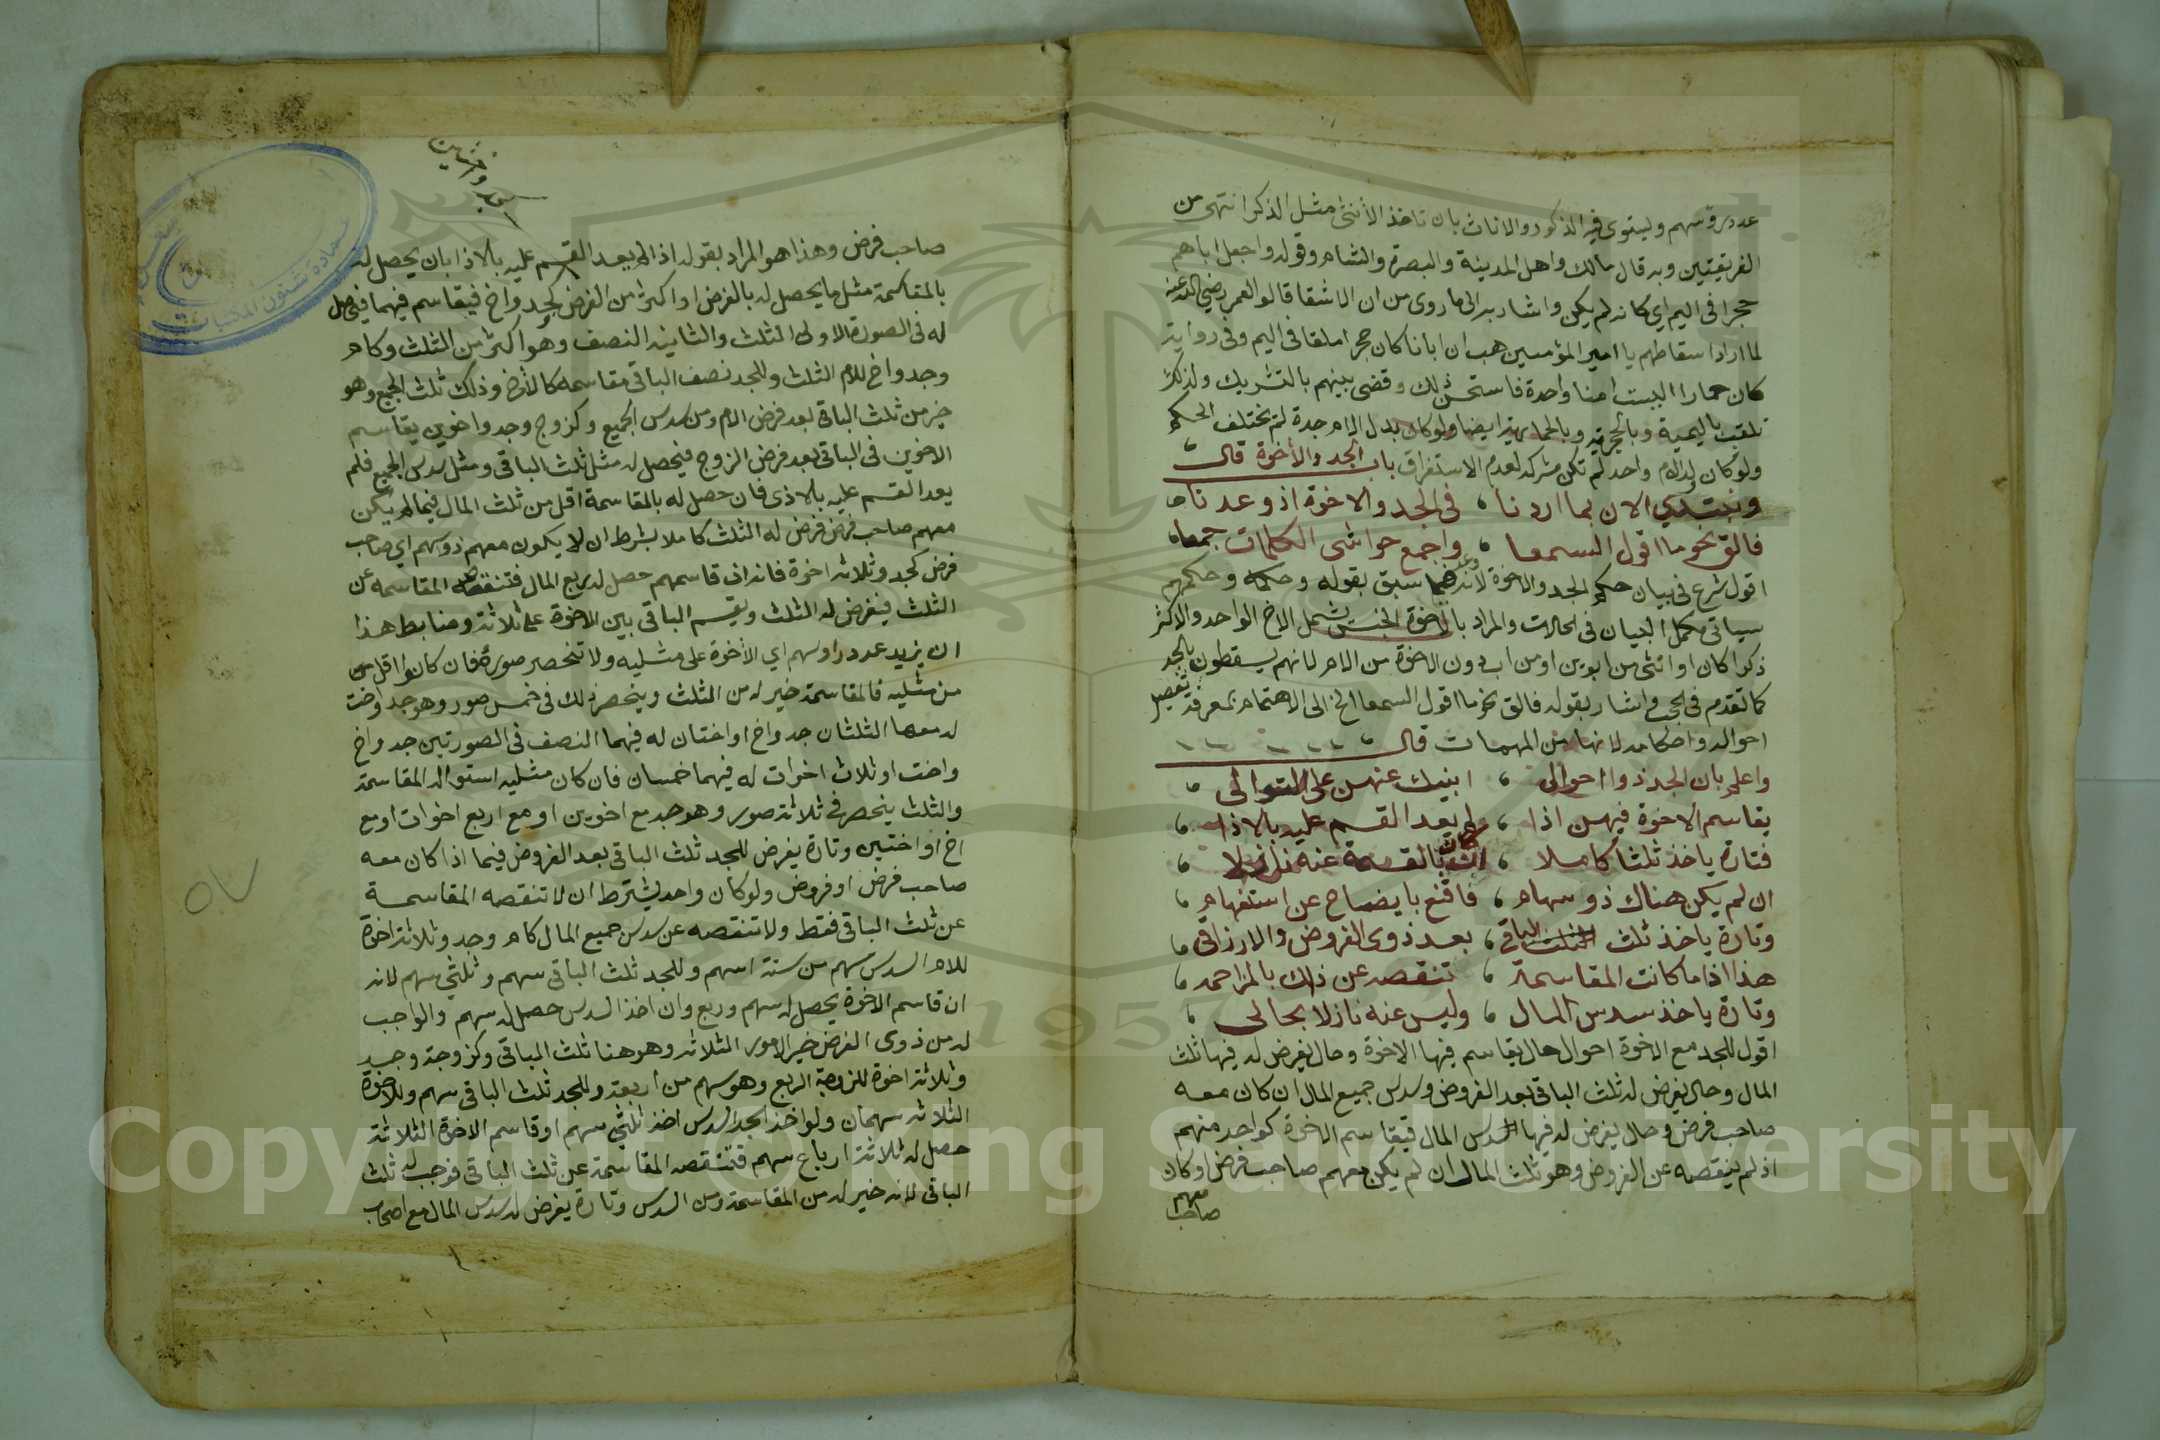 عدد رؤسهم ويستوى فيه الذكور والاناث بان تاخذ الأنثى مثل الذكر انتهى من
الفريقين وبه قال مالك واهل المدينة والبصرة والشام وقوله واجعل اباهم
حجرا فى اليم اي كانه لم يكن واشار به الى ما روى من ان الاشقا قالوا لعمر رضي الله عنه
لما اراد اسقاطهم يا امير المؤمنين هب ان ابانا كان حجرا ملقا فى اليم وفى رواية
كان حمارا اليست امنا واحدة فاستحسن ذلك وقضى بينهم بالتشريك ولذلك
تلقب باليمية وبالحجرية وبالحمارية ايضا ولو كان بدل الام جدة لم يختلف الحكم
ولو كان ولد الام واحد لم تكن مشركه لعدم الاستغراق باب الجد والأخوة قال
ونبتدي الان بما اردنا ، فى الجد والاخوة اذ وعدنا
فالق نحو ما اقول السمعا ، واجمع حواشى الكلمات جمعا
اقول شرع فى بيان حكم الجد والاخوة لانه وعد فيما سبق بقوله وحكمه وحكمهم
سياتى مكمل البيان فى الحالات والمراد بالاخوة الجنس يشمل الاخ الواحد والاكثر
ذكرا كان او انثى من ابوين او من اب دون الاخوة من الام لانهم يسقطون بالجد
كما تقدم فى الحجب واشار بقوله فالق نحو ما اقول السمعا الخ الى الاهتمام بمعرفة تفصيل
احواله واحكامه لانها من المهمات قال
واعلم بان الجد ذوا احوالى ، انبيك عنهن على التوالى
يقاسم الاخوة فيهن اذا ، لم يعد القسم عليه بالاذا
فتارة ياخذ ثلثا كاملا ، ان كان بالقسمة عنه نازلا
ان لم يكن هناك ذو سهام ، فاقنع بايضاح عن استفهام
وتارة ياخذ ثلث الباقى ، بعد ذوى الفروض والارزاقى
هذا اذا ما كانت المقاسمة ، تنقصه عن ذاك بالمزاحمه
وتارة ياخذ سدس المال ، وليس عنه نازلا بحالى
اقول للجد مع الاخوة احوال حال يقاسم فيها الاخوة وحال يفرض له فيها ثلث
المال وحال يفرض له ثلث الباقى بعد الفروض وسدس جميع المال ان كان معه
صاحب فرض وحال يفرض له فيها السدس المال فيقاسم الاخوة كواحد منهم
اذ لم ينقصه عن الفروض وهو ثلث المال ان لم يكن معهم صاحب فرض او كان
معهم صاحب
صاحب فرض وهذا هو المراد بقوله اذا لم يعد القسم عليه بالاذا بان يحصل له
بالمقاسمة مثل ما يحصل له بالفرض او اكثر من الفرض كجد واخ فيقاسم فيهما فيحصل
له فى الصورة الاولى الثلث والثانيه النصف وهو اكثر من الثلث وكام
وجد واخ للام الثلث وللجد نصف الباقى مقاسمه كالأخ وذلك ثلث الجميع وهو
خير من ثلث الباقى بعد فرض الام ومن سدس الجميع وكزوج وجد واخوين يقاسم
الاخوين فى الباقى بعد فرض الزوج فيحصل له مثل ثلث الباقى ومثل سدس الجميع فلم
يعد القسم عليه بالاذى فان حصل له بالمقاسمة اقل من ثلث المال فيما لم يكن
معهم صاحب فرض فرض له الثلث كاملا بشرط ان لا يكون معهم ذو سهم اي صاحب
فرض كجد وثلاثه اخوة فانه ان قاسمهم حصل له ربع المال فتنقصه المقاسمه عن
الثلث فيفرض له الثلث ويقسم الباقى بين الاخوة على ثلاثة وضابط هذا
ان يزيد عدد راوسهم اي الأخوة على مثليه ولا تنحصر صوره فان كانوا اقل من
من مثليه فالمقاسمة خير له من الثلث وينحصر ذلك فى خمس صور وهو جد واخت
له معها الثلثان جد واخ او اختان له فيهما النصف فى الصورتين جد واخ
واخت او ثلاث اخوات له فيهما خمسان فان كان مثليه استوا له المقاسمة
والثلث ينحصر فى ثلاثة صور وهو جد مع اخوين او مع اربع اخوات او مع
اخ او اختين وتارة يفرض للجد ثلث الباقى بعد الفروض فيما اذا كان معه
صاحب فرض او فروض ولو كان واحد يشترط ان لا تنقصه المقاسمة
عن ثلث الباقى فقط ولا تنقصه عن سدس جميع المال كام وجد وثلاثة اخوة
للام السدس سهم من ستة اسهم وللجد ثلث الباقى سهم وثلثي سهم لانه
ان قاسم الاخوة يحصل له سهم وربع وان اخذ السدس حصل له سهم والواجب
له من ذوى الفرض خير الامور الثلاثه وهو هنا ثلث الباقى وكزوجة وجد
وثلاثة اخوة للزوجة الربع وهو سهم من اربعة وللجد ثلث الباقى سهم وللاخوة
الثلاثه سهمان ولو اخذ الجد السدس اخذ ثلثي سهم او قاسم الاخوة الثلاثة
حصل له ثلاثة ارباع سهم فتنقصه المقاسمة عن ثلث الباقى فوجب له ثلث
الباقى لانه خير له من المقاسمة ومن السدس وتارة يفرض له سدس المال مع اصحاب
عمادة شئون المكتبات
٥٧
1957
Copyright © King Saud University